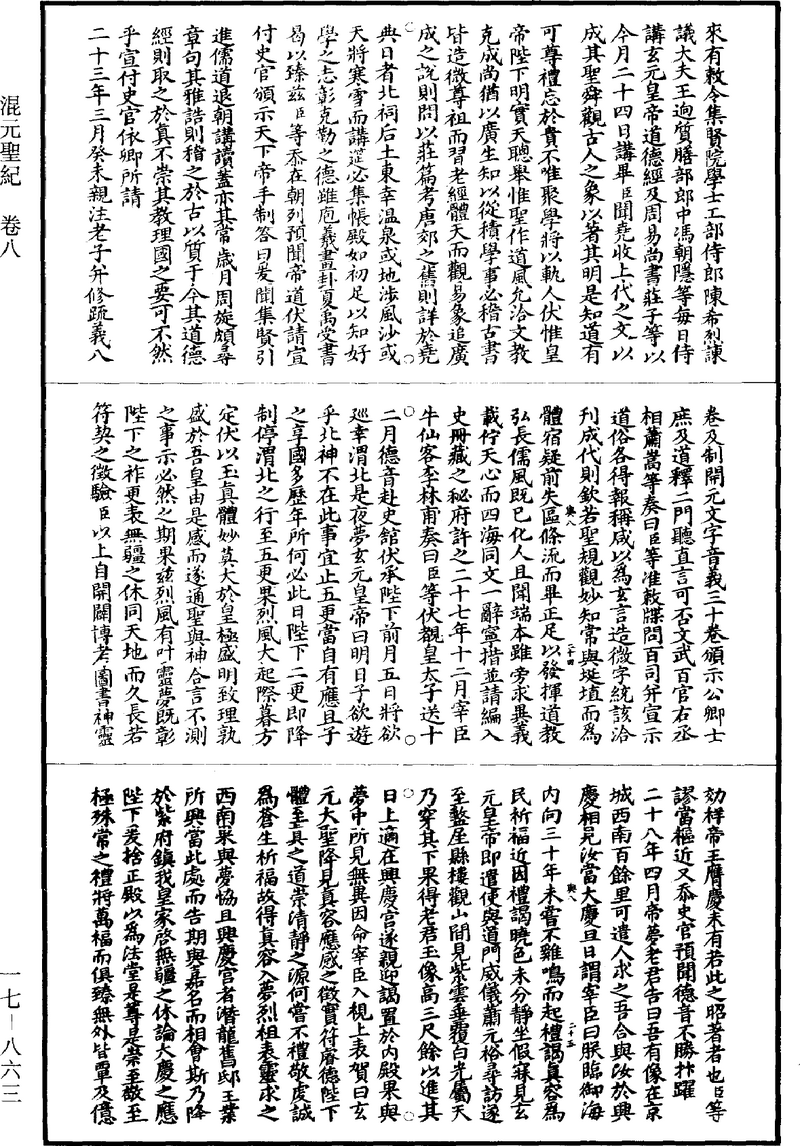 混元聖紀　卷八
來有敕令集賢院學士工部侍郎陳希烈諫
議大夫王迥質膳部郎中馮朝隱等每日侍
講玄元皇帝道德經及周易尚書莊子等以
今月二十四日講畢臣聞堯收上代之文以
成其聖舜觀古人之象以著其明是知道有
可尊禮忘於貴不唯聚學將以軌人伏惟皇
帝陛下明實天聰舉惟聖作道風允洽文教
克成尚猶以廣生知以從積學事必稽古書
皆造微尊祖而習老經體天而觀易象追廣
成之說則問以莊篇考唐郊之舊則詳於堯
典日者北祠后土東幸溫泉或地涉風沙或
天將寒雪而講筵必集帳殿如初足以知好
學之志彰克勤之德雖庖羲畫卦夏禹受書
曷以臻茲臣等忝在朝列預聞帝道伏請宣
付史官頒示天下帝手制答曰爰聞集賢引
進儒道退朝講讀蓋亦其常歲月周旋頗尋
章句其雅誥則稽之於古以質于今其道德
經則取之於真不崇其教理國之要可不然
乎宣付史官依卿所請
二十三年三月癸未親注老子并修疏義八
卷及制開元文字音義三十卷頒示公卿士
庶及道釋二門聽直言可否文武百官右丞
相蕭嵩等奏曰臣等准敕牒問百司并宣示
道俗各得報稱咸以為玄言造微字統該洽
刊成代則欽若聖規觀妙知常與埏埴而為
體宿疑前失區條流而畢正足以發揮道教
弘長儒風既已化人且開端本雖旁求異義
載佇天心而四海同文一辭寧措並請編入
史冊藏之秘府許之二十七年十二月宰臣
牛仙客李林甫奏曰臣等伏覩皇太子送十
二月德音赴史館伏承陛下前月五日將欲
巡幸渭北是夜夢玄元皇帝曰明日子欲遊
乎北神不在此事宜止五更當自有應且子
之享國多歷年所何必此日陛下二更即降
制停渭北之行至五更果烈風大起際暮方
定伏以玉真體妙莫大於皇極盛明致理孰
盛於吾皇由是感而遂通聖與神合言不測
之事示必然之期果茲烈風有叶靈夢既彰
陛下之祚更表無疆之休同天地而久長若
符契之徵驗臣以上自開闢博考圖書神靈
効祥帝王膺慶未有若此之昭著者也臣等
謬當樞近又忝史官預聞德音不勝抃躍
二十八年四月帝夢老君告曰吾有像在京
城西南百餘里可遣人求之吾合與汝於興
慶相見汝當大慶旦日謂宰臣曰朕臨御海
內向三十年未嘗不雞鳴而起禮謁真容為
民祈福近因禮謁曉色未分靜坐假寐見玄
元皇帝即遣使與道門威儀蕭元裕尋訪遂
至盩厔縣樓觀山間見紫雲垂覆白光屬天
乃穿其下果得老君玉像高三尺餘以進其
日上適在興慶宮遂親迎謁置於內殿果與
夢中所見無異因命宰臣入覩上表賀曰玄
元大聖降見真容應感之徵實符睿德陛下
體至真之道崇清靜之源何嘗不禮敬虔誠
為蒼生祈福故得真容入夢烈祖表靈求之
西南果與夢協且興慶宮者潛龍舊邸王業
所興當此處而告期與嘉名而相會斯乃降
於紫府鎮我皇家啓無疆之休論大慶之應
陛下爰捨正殿以為法堂是尊是崇至敬至
極殊常之禮將萬福而俱臻無外皆覃及億
一七－八六三